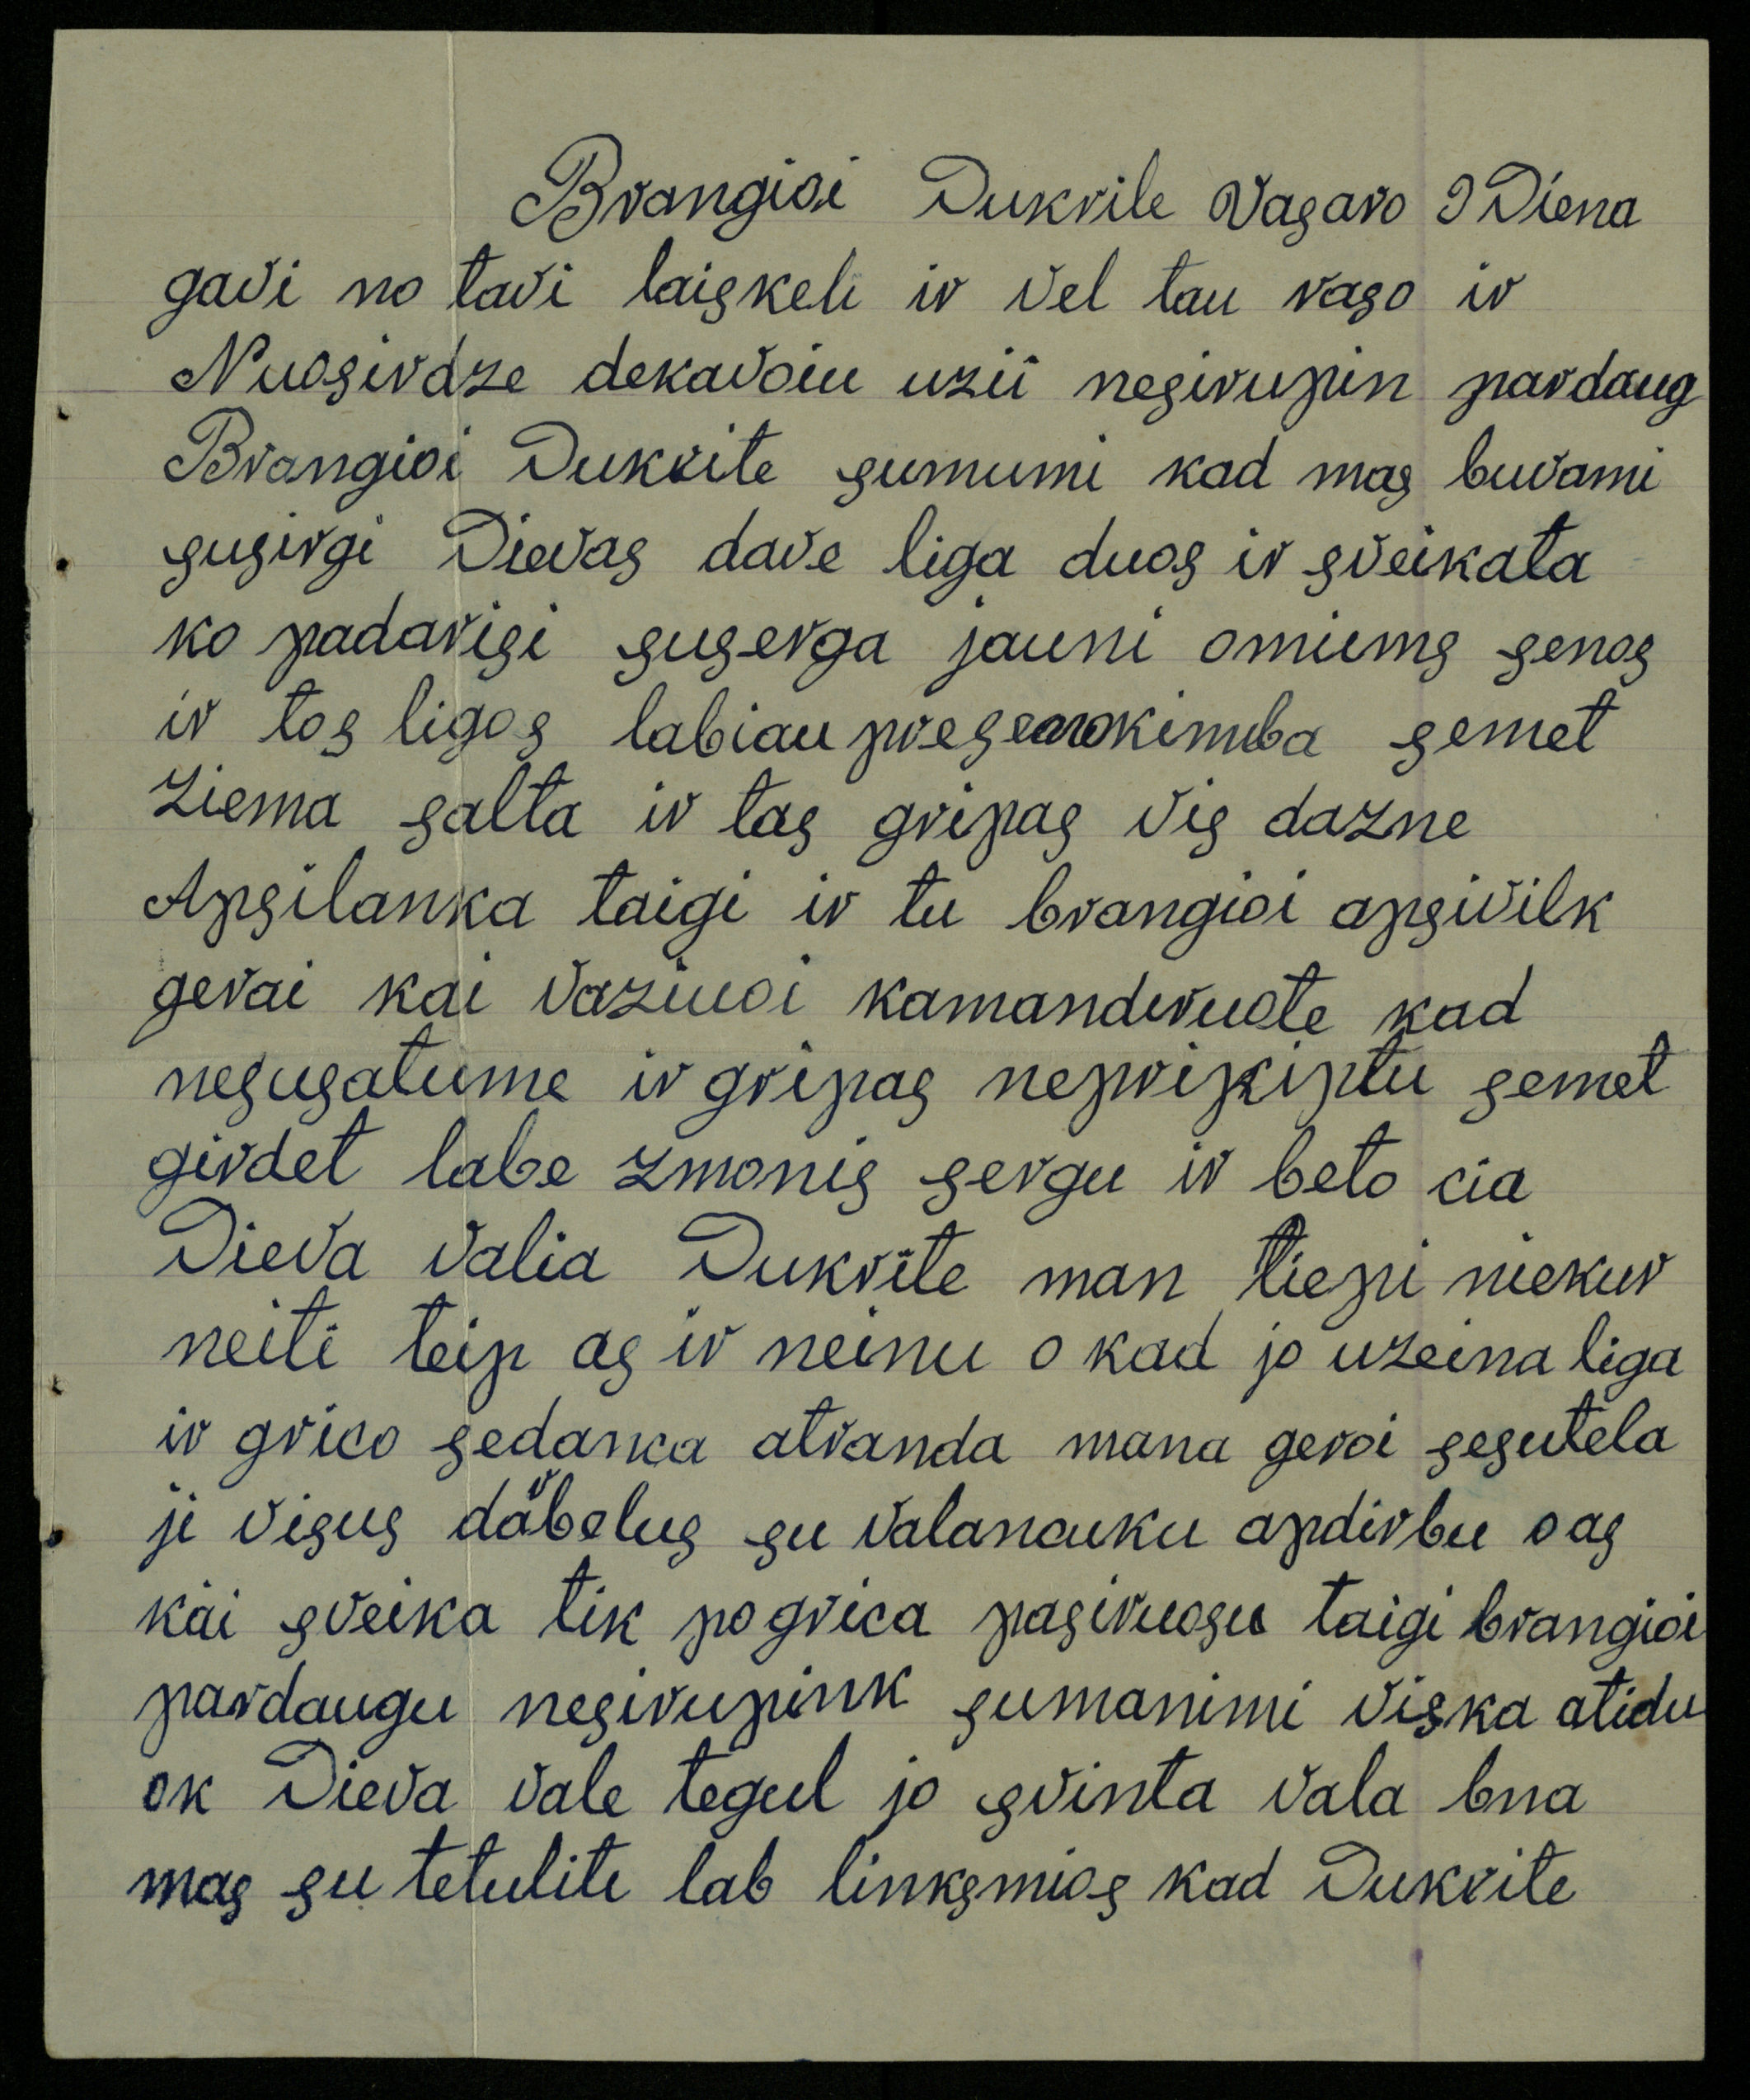 Brangioi Dukrile Vasaro 9 Diena
gavi no tavi laiskeli ir vel tau raso ir
Nuosirdze dekavoiu uzii nesirupin pardaug
Brangioi Dukrite sumumi kad mas buvami
susirgi Dievas dave liga duos ir sveikata
ko padarisi suserga jauni omiums senos
ir tos ligos labiau kimba semet
Ziema salta ir tas gripas vis dazne
Apsilanka taigi ir tu brangioi apsivilk
gerai kai vaziuoi kamandiruote kad
nesusatume ir gripas neprikiptu semet
girdet labe zmonis sergu ir beto cia
Dieva valia Dukrite man tiepi niekur
neiti teip as ir neinu o kad jo uzeina liga
ir grico sedanca atranda mana geroi sesutela
ji visus däbelus su valancuku apdirbu o as
kai sveika tik pogrica pasiruosu taigi brangioi
pardaugu nesirupink sumanimi viska atidu
ok Dieva vale tegul jo svinta vala bna
mas su tetuliti lab linksmios kad Dukrite